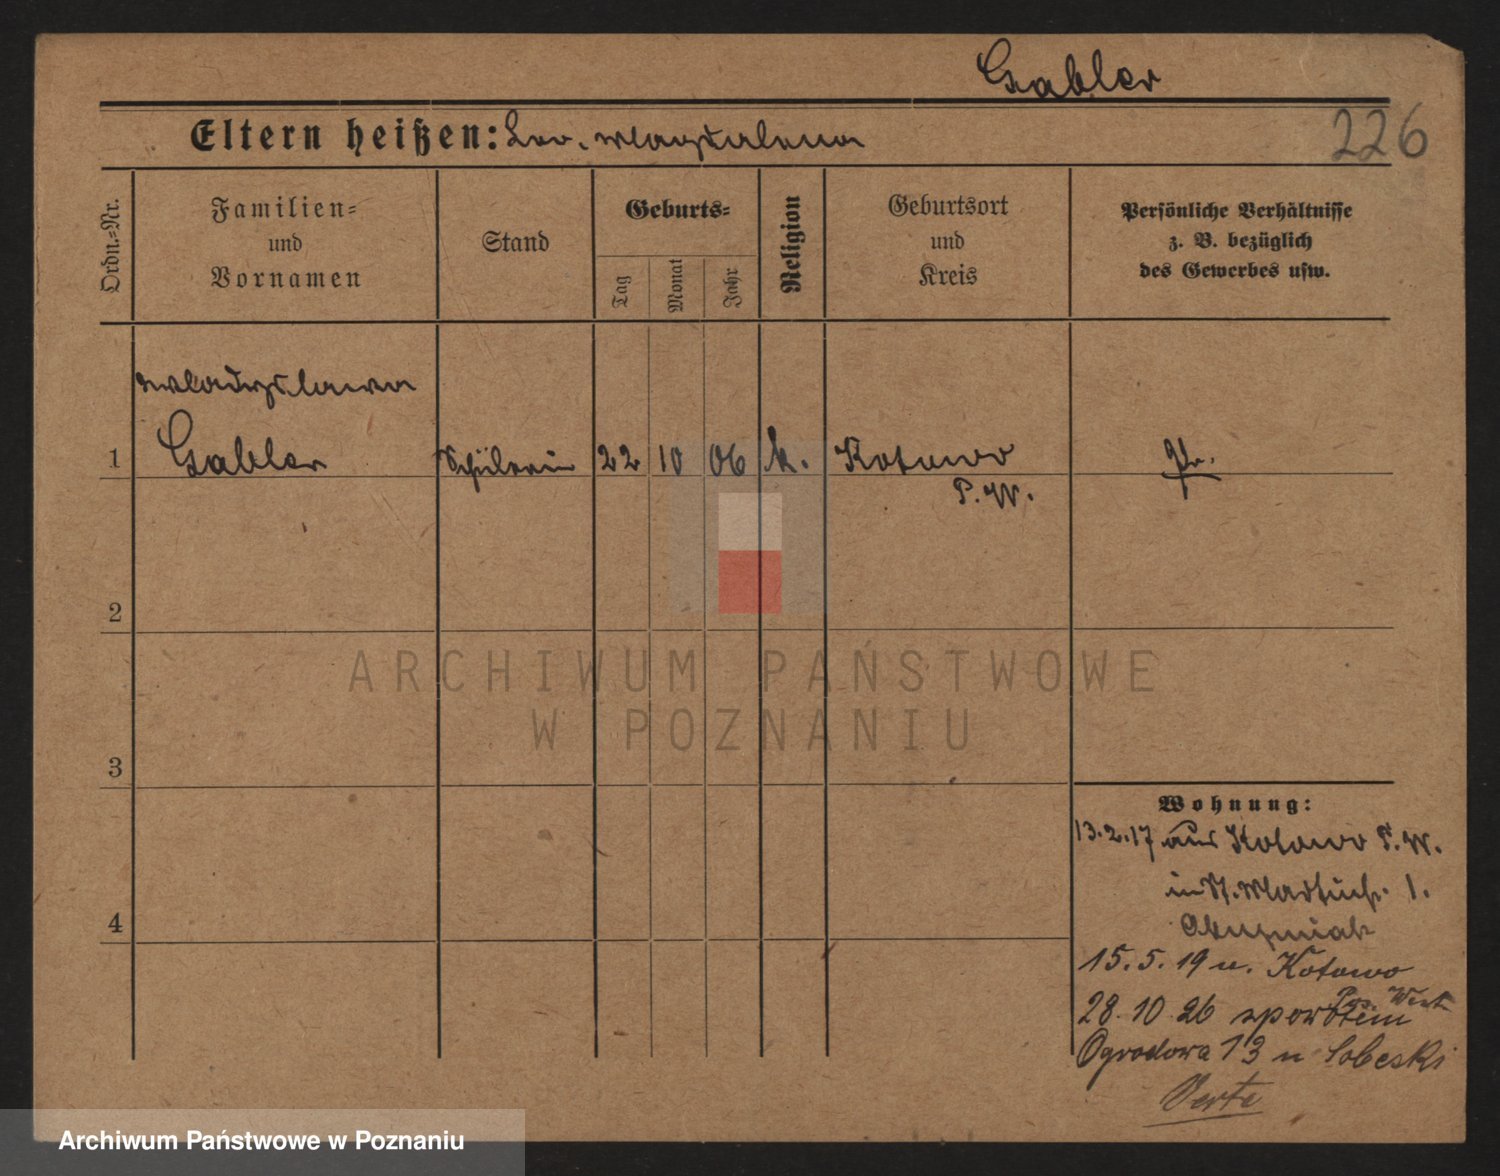 Gabler
226
Eltern heißen: Leo. Magdalena
Ordn.=Nr.
Familien=
und
Vornamen
Stand
Geburts=
Tag
Monat
Jahr
Religion
Geburtsort
und
Kreis
Persönliche Verhältnisse
z. B. bezüglich
des Gewerbes usw.
Wladyslawa
1 Gabler Schülerin 22 10 06 k. Kotowo Pr.
P. W.
2
3
4
Wohnung:
13.2.17 aus Kotowo P. W.
in St. 1.
15. 5. 19 n. Kotowo
Pos. West
28. 10. 26 zpowrotem
Ogrodowa 13 u Sobeski
Verte
ARCHIWUM PAŃSTWOWE
W POZNANIU
Archiwum Państwowe w Poznaniu